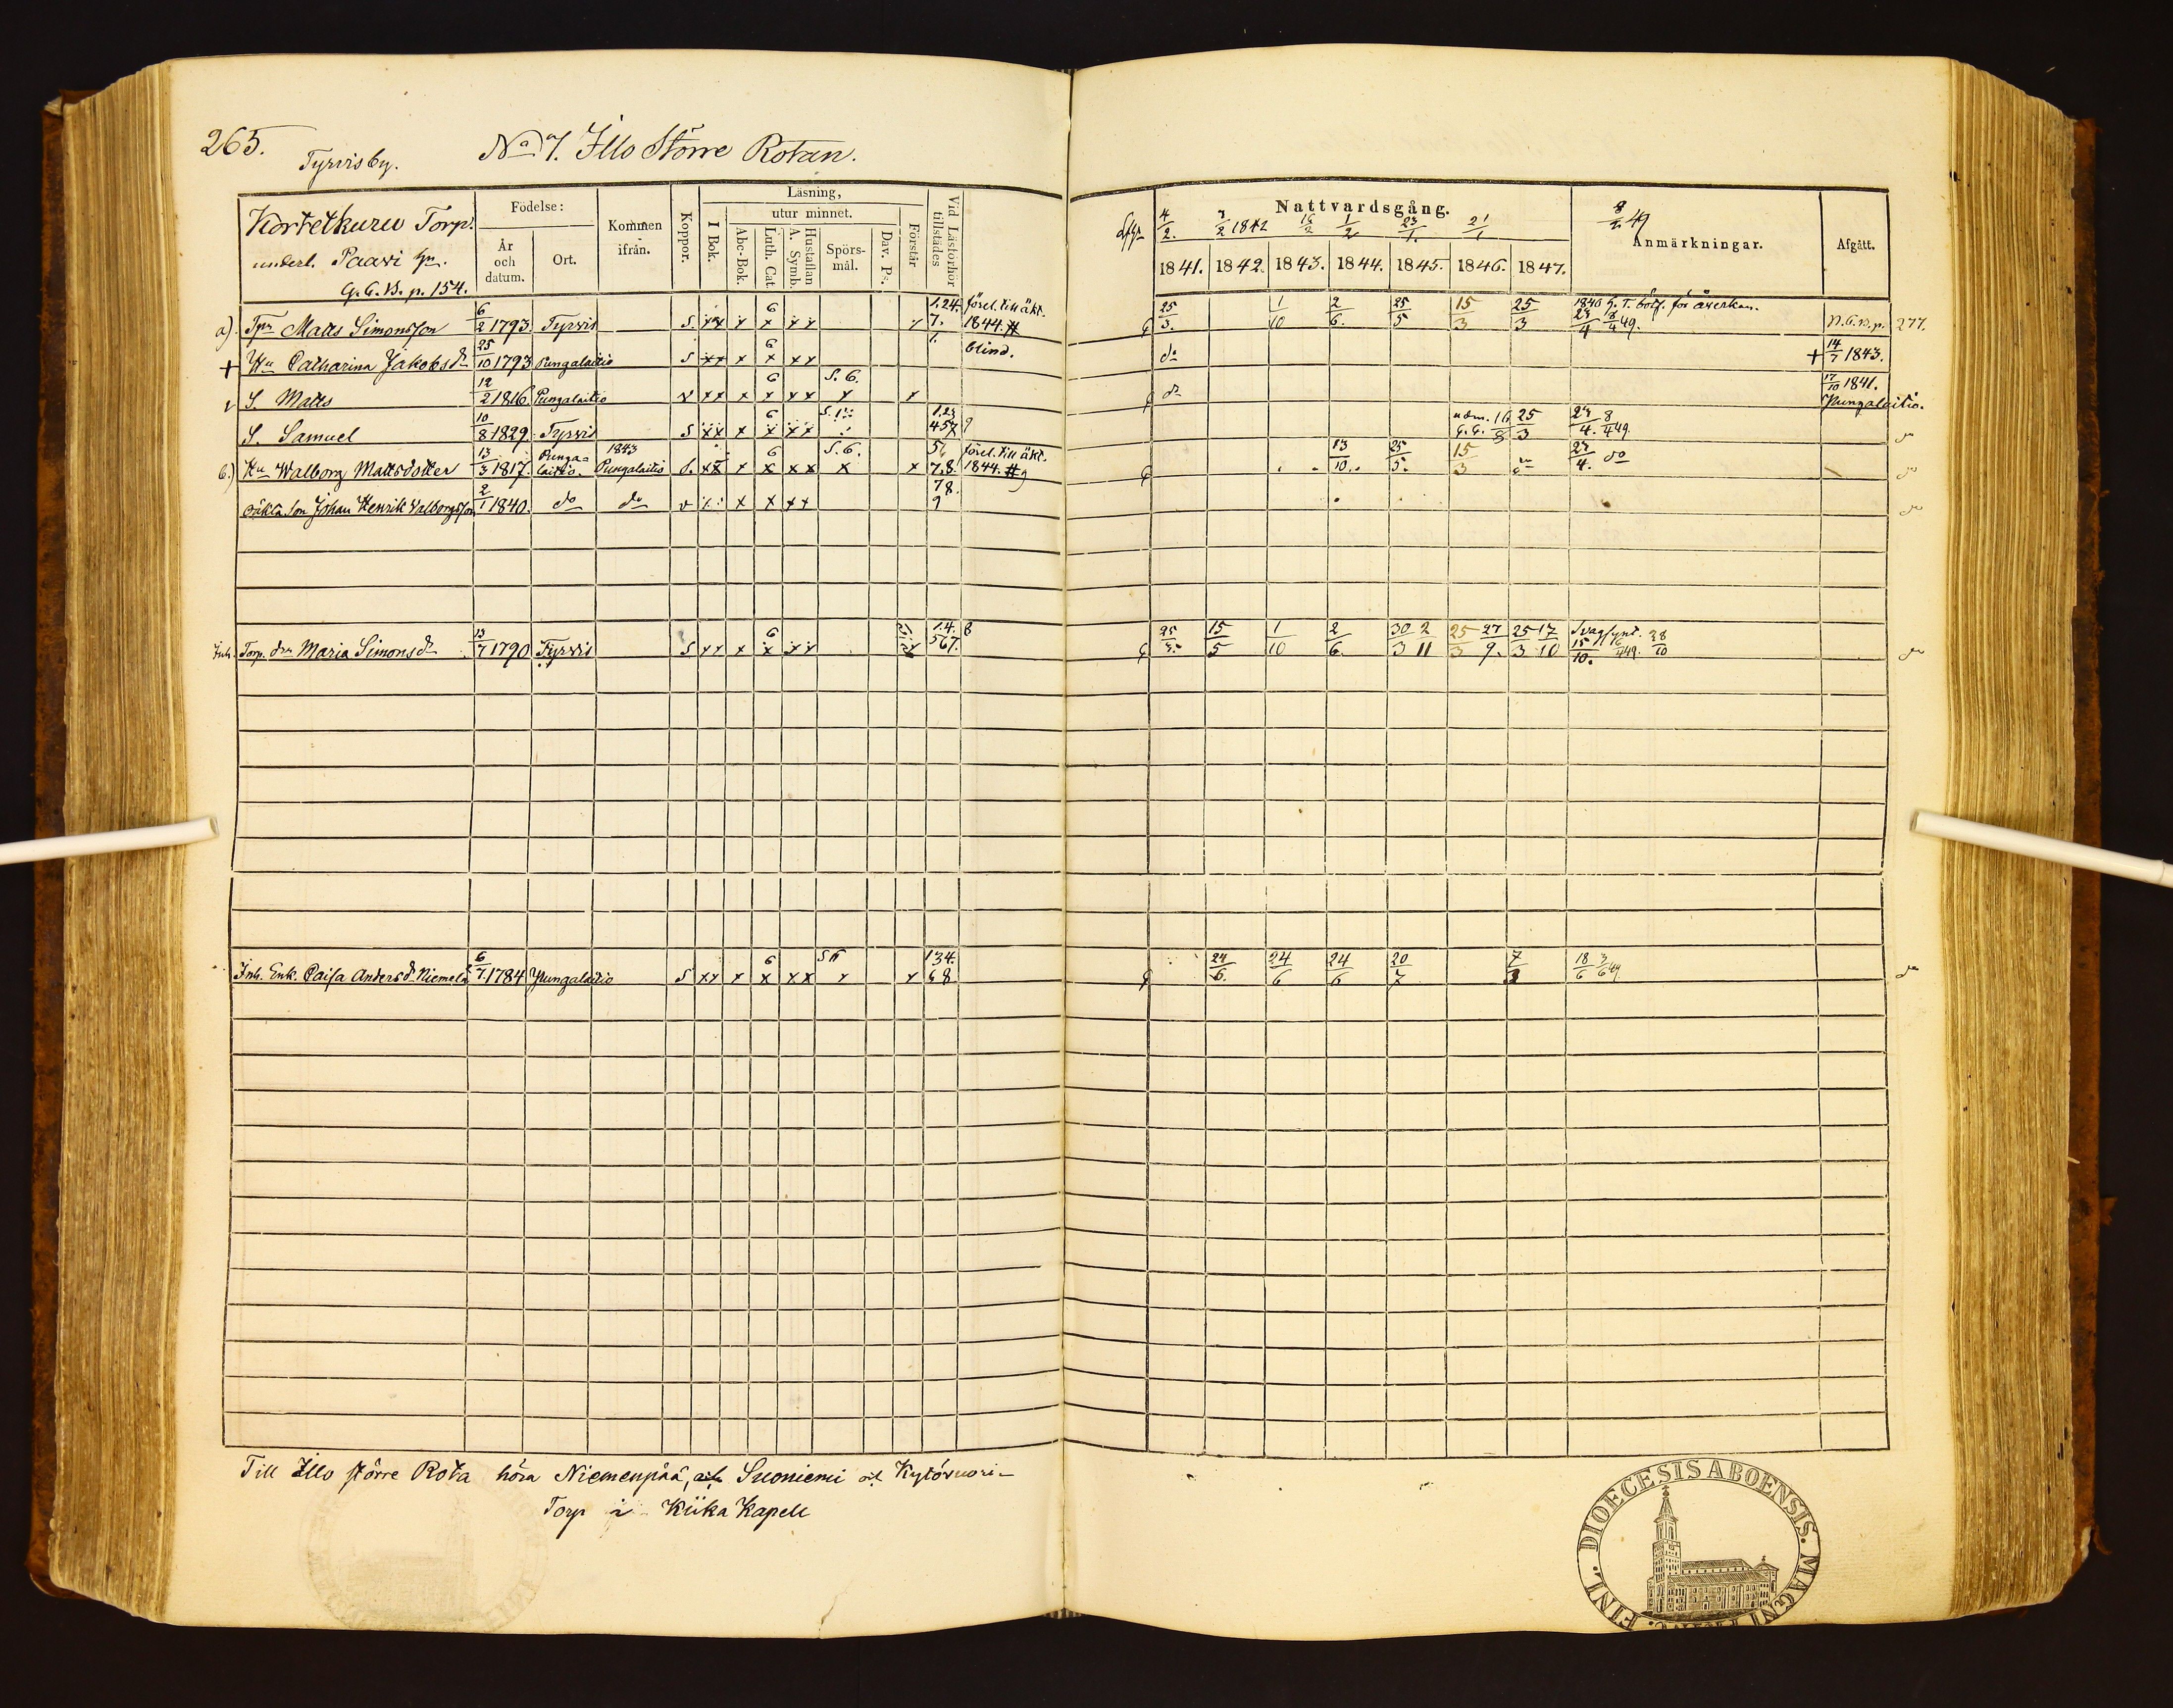 265.
Tyrvis by.
No 7. Illo Större Rotan.
Kortetkuru Torp.
underl. Paavi hn.
G.C.B. p. 154.
Födelse:
År och datum.
Ort.
Kommen ifrån.
Koppor.
Läsning,
I Bok.
utur minnet.
Abc-Bok.
Luth. Cat.
Hustaflan A. Symb.
Spörs-mål.
Dav. Ps.
Förstår
Vid Läsförhör tillstädes
Nattvardsgång.
4/2. 7/2 1842 16/2 1/2 23/1. 21/1
1841. 1842. 1843. 1844. 1845. 1846. 1847.
8/2 49
Anmärkningar.
Afgått.
a). Tpr Matts Simonsson 6/2 1793 Tyrvis S. 6 1.24. 7. försl. till äkt. 1844. # 25/3. 1/10 2/6. 25/5 15/3 25/3 1840 24/4 18/4 49. N.C.B.p. 277.
+ Hu Catharina Jakobsdr 25/10 1793 Pungalaitio S 6 1. blind. do + 14/7 1843.
v S. Matts 12/2 1816 Pungalaitio v 6 S. 6. do 17/10 1841. Pungalaitio.
S. Samuel 10/8 1829 Tyrvis S 6 1.23 457 9 16/8 25/3 24/4. 8/4 49 do
b.) Hu Walborg Mattsdotter 13/3 1817. Pungalaitio. 1843 Pungalaitio S. 6 S. 6. 56 7.8. försl. till äkt. 1844. # 9 13/10. 25/5. 15/3 do 24/4. do do
oäkta Son Johan Henrik Valborgsson 2/1 1840. do do v 78. 9 do
Inh. Torp. dr Maria Simonsdr 13/7 1790 Tyrvis S 6 1.4. 567. 8 25/3. 15/5 1/10 2/6. 30/3 2/11 25/3 27/9. 25/3 17/10 Svagsynt. 15/10. 6/4 49. 28/10 do
Inh. Enk. Caisa Andersdr Niemelä 6/7. 1784 Pungalaitio S 6 134. 68. 24/6. 24/6 24/6 20/7 7/3 18/6 3/6 49 do
Till Illo större Rota höra Niemenpää, Suoniemi och Kytövuori-
Torp i Kiika Kapell
DIOECESIS ABOENSIS. MAGNI FINL.